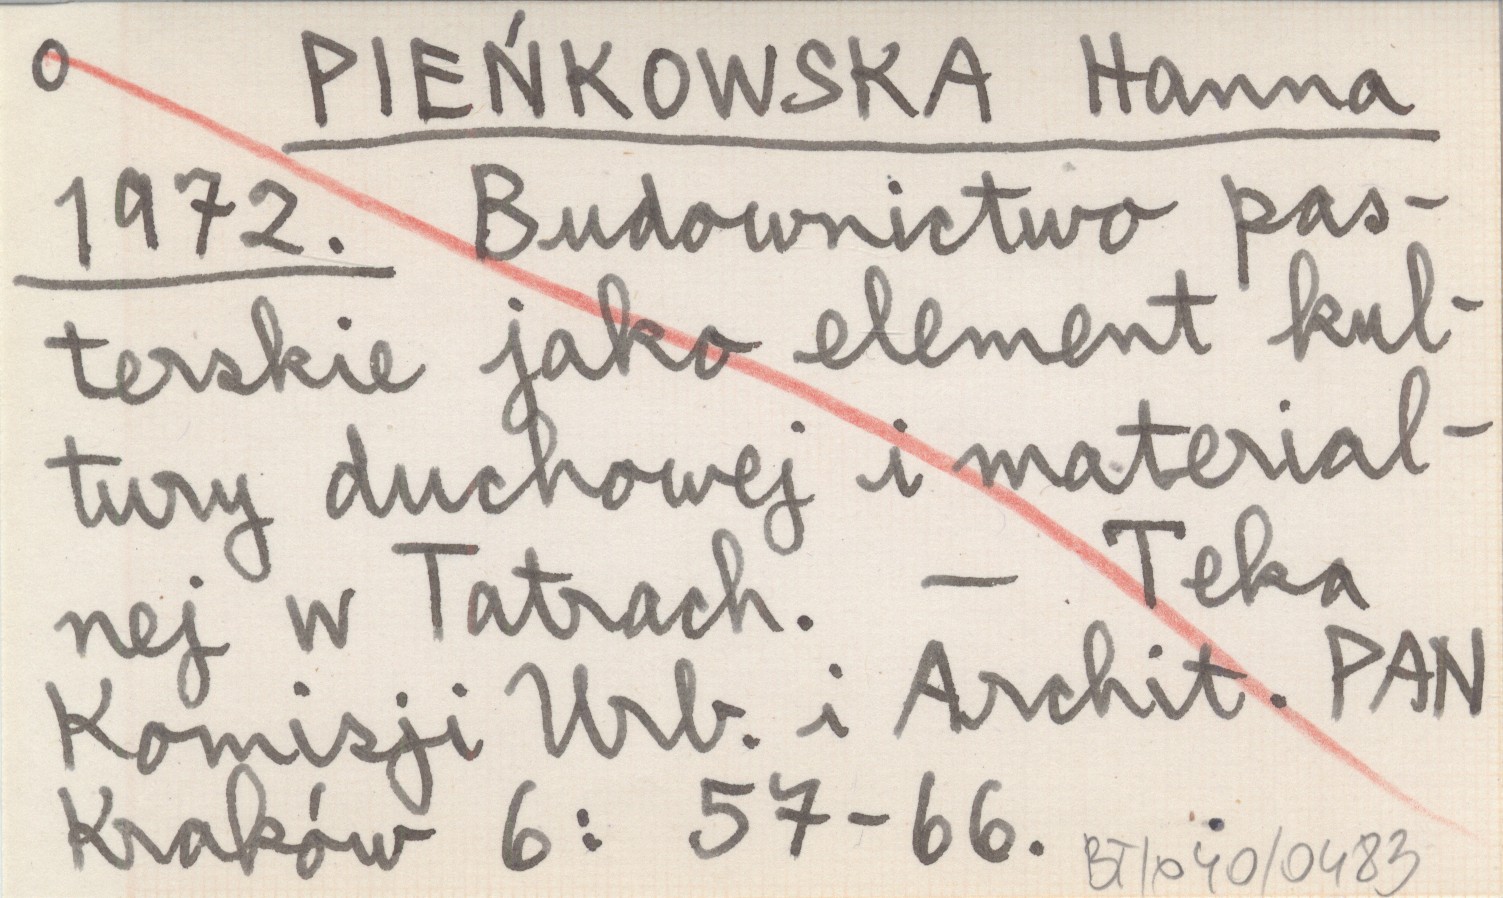 o PIEŃKOWSKA Hanna
1972. Budownictwo pas-
terskie jako element kul-
tury duchowej i material-
nej w Tatrach. — Teka
Komisji Urb. i Archit. PAN
Kraków 6: 57-66.
BT/p40/0483